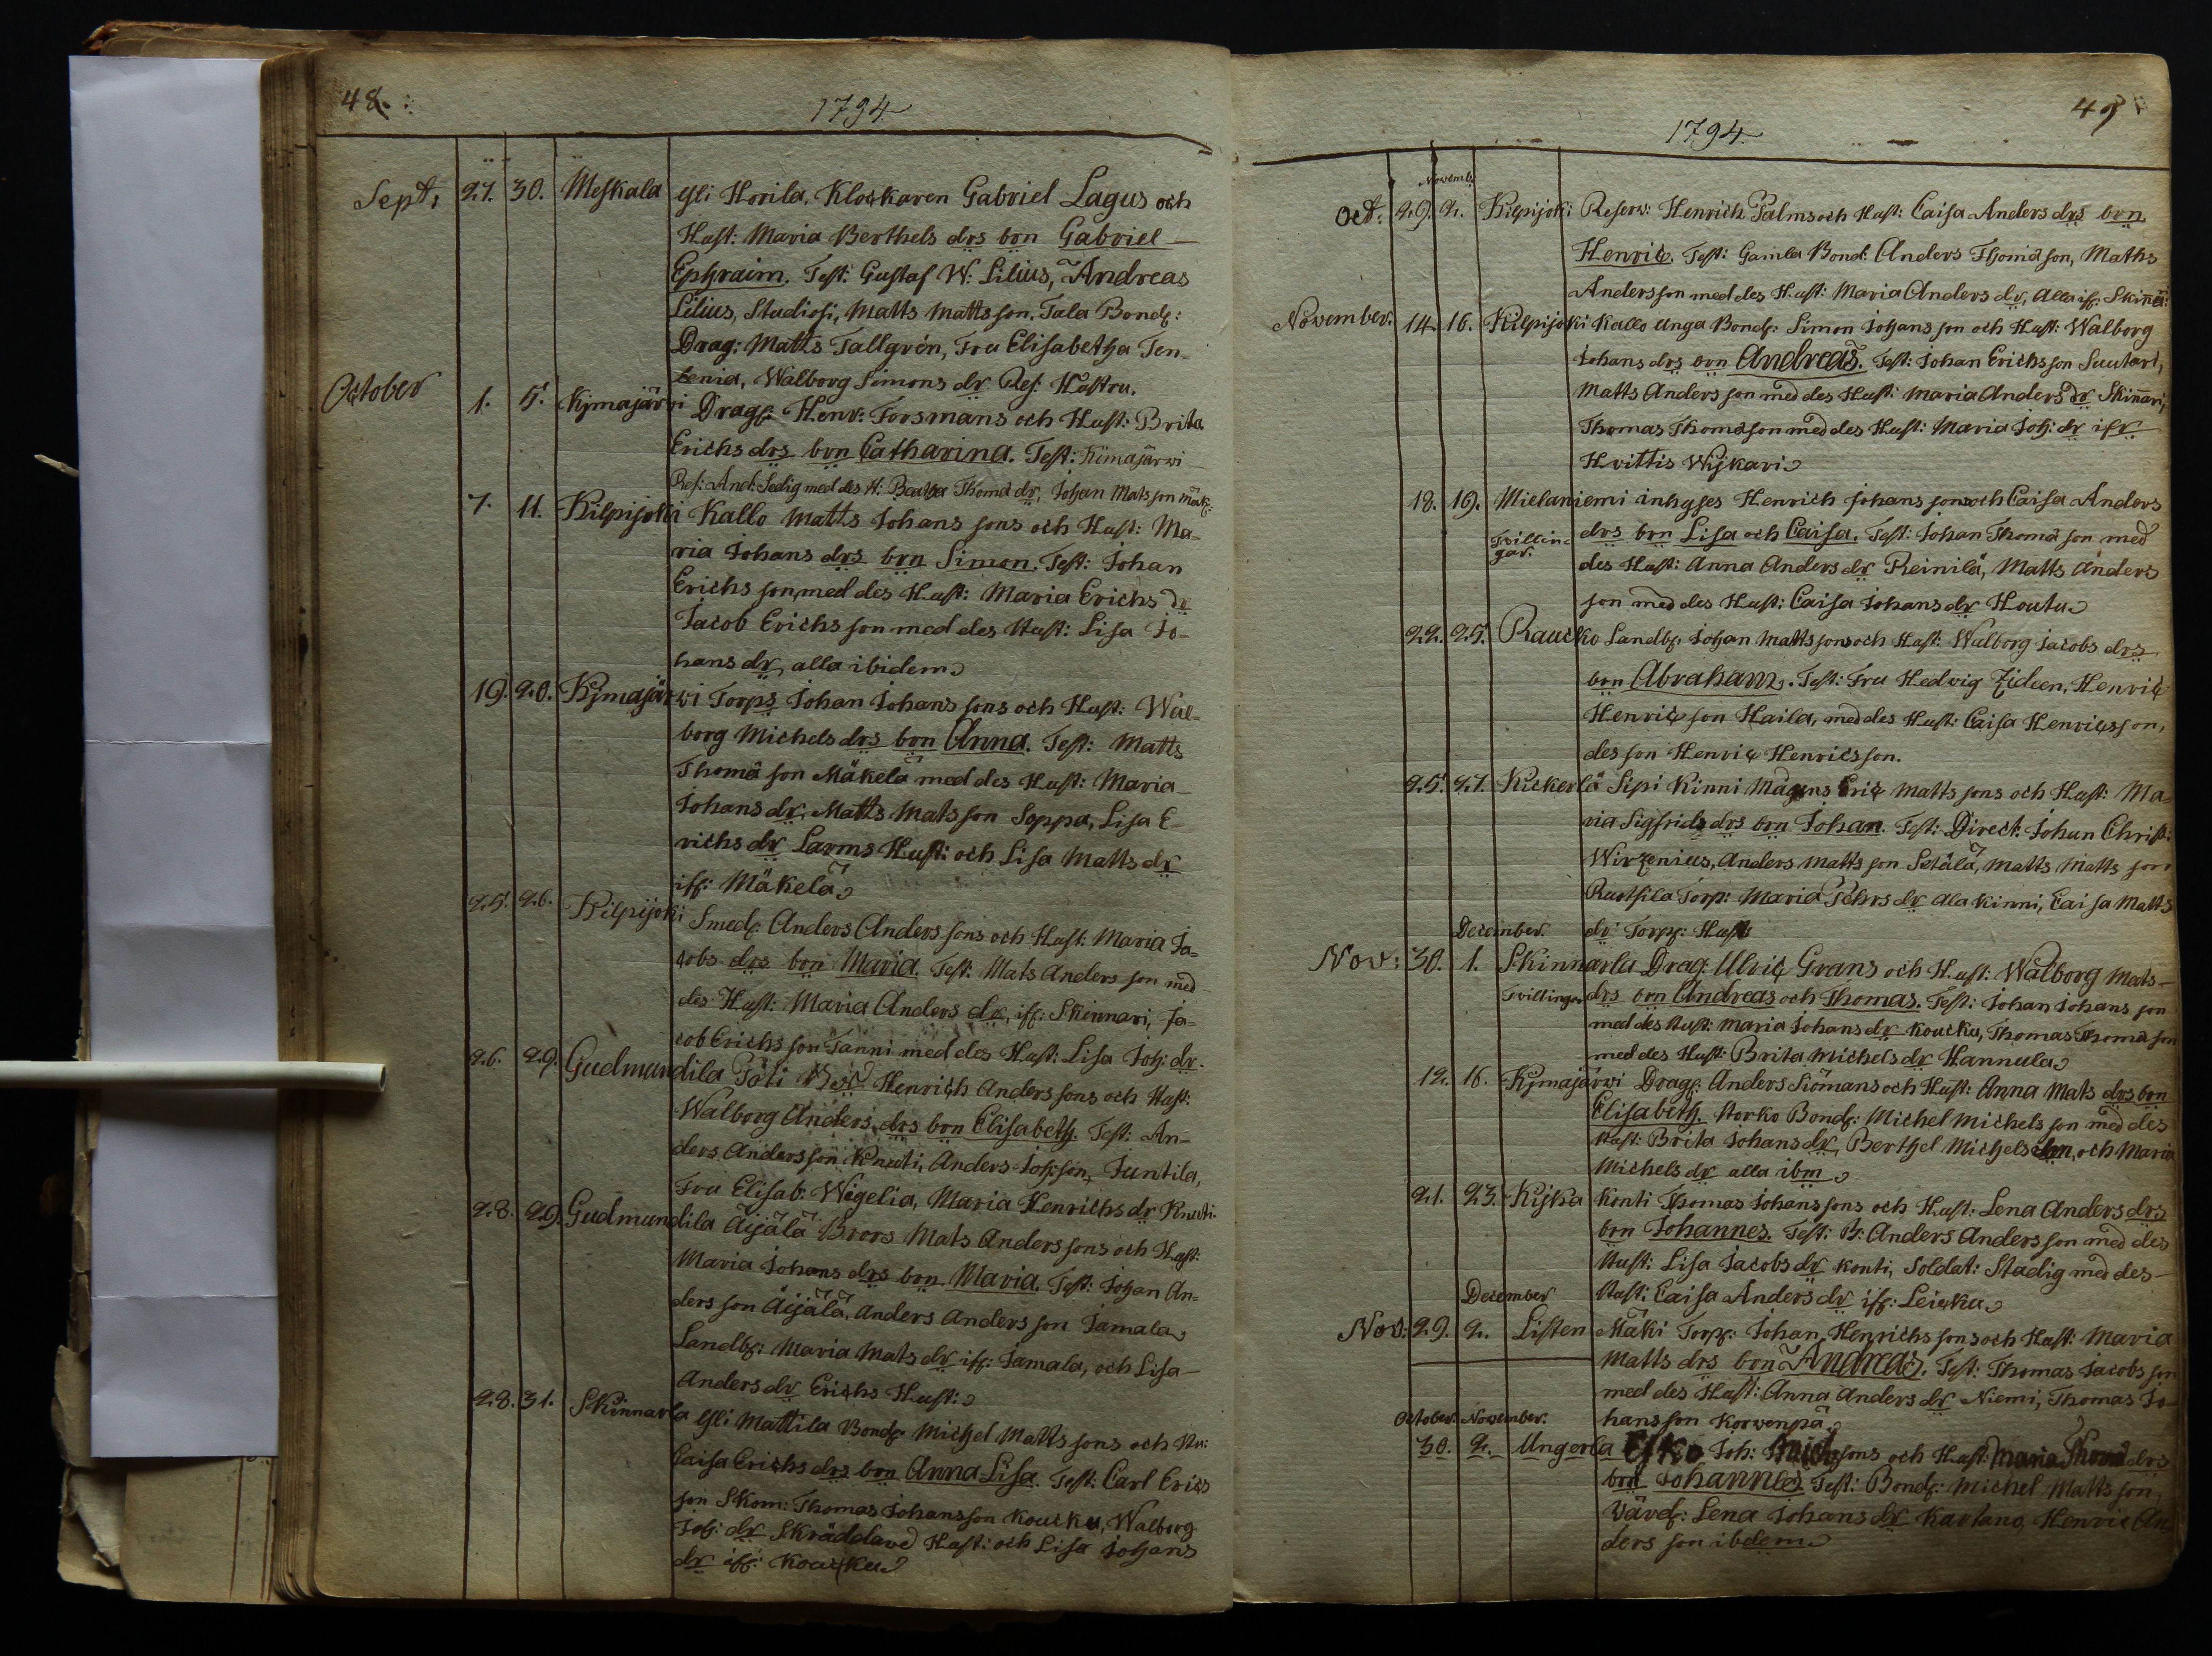 48.
1794
Sept: 27. 30. Meskala yli Horila, Klockaren Gabriel Lagus och
Hust: Maria Berthels drs brn Gabriel
Ephraim. Test: Gustaf W: Lilius, Andreas
Lilius, Studiosi, Matts Mattsson, Tala Bond:
Drag: Matts Tallgrén, Fru Elisabetha Ten-
lenia, Walborg Simons dr Ref: Hustru.
October 1. 5. Kjmajärwi Drag: Henr: Forsmans och Hust: Brita
Erichs drs brn Catharina. Test: Kimajärwi
Ref: And: Sedig med des H: Beatha Thoma dr, Johan Matsson mäk:
7. 11. Kilpijoki Kallo Matts Johans sons och Hust: Ma-
ria Johans drs brn Simon. Test: Johan
Erichs son med des Hust: Maria Erichs dr
Jacob Erichs son med des Hust: Lisa Jo-
hans dr, alla ibidem
19. 20. Kjmajärwi Torps Johan Johans sons och Hust: Wal-
borg Michels drs brn Anna. Test: Matts
Thomä son Mäkelä med des Hust: Maria
Johans dr, Matts Matsson Soppa, Lisa E-
richs dr Larms Hust: och Lisa Matts dr
if: Mäkelä
25. 26. Kilpijoki Smed: Anders Anders sons och Hust: Maria Ja-
cobs drs brn Maria. Test: Mats Anders son med
des Hust: Maria Anders dr, if: Skinnari, Ja-
cob Erichs son Tanni med des Hust: Lisa Joh: dr.
26. 29. Gudmundila Pöti Henrich Anders sons och Hust:
Walborg Anders drs brn Elisabeth. Test: An-
ders Anders son Knuti, Anders Joh:son, Juntila,
Fru Elisab: Wigelia, Maria Henrichs dr Knuti.
28. 29. Gudmundila Äijälä Brors Mats Anders sons och Hust:
Maria Johans drs brn Maria. Test: Johan An-
ders son Äijälä, Anders Anders son Jamala
Landb: Maria Mats dr if: Jamala, och Lisa
Anders dr Erichs Hust:
28. 31. Skinnarla yli Mattila Bond: Michel Matts sons och Hu:
Caisa Erichs drs brn Anna Lisa. Test: Carl Erics
son Skom: Thomas Johansson Koucku, Walborg
Joh: dr Skräddare Hust: och Lisa Johans
dr if: Koucku
49
1794
Novemb:
Oct: 29. 2. Kilpijoki Reserv: Henrich Palms och Hust: Caisa Anders drs brn
Henric. Test: Gamla Bond: Anders Thomä son, Matts
Andersson med des Hust: Maria Anders dr, alla if: Skinna:
November. 14. 16. Kilpijoki Kallo unga Bond: Simon Johans son och Hust: Walborg
Johans drs brn Andreas. Test: Johan Erichs son Suutari,
Matts Anders son med des Hust: Maria Anders dr Skinnari,
Thomas Thomä son med des Hust: Maria Joh: dr ifr
Hvittis Wijkari
18. 19. Mielaniemi inhyses Henrich Johans sons och Caisa Anders
Tvillin-
gar. drs brn Lisa och Caisa. Test: Johan Thomä son med
des Hust: Anna Anders dr Reinilä, Matts Anders
son med des Hust: Caisa Johans dr Houtu
22. 25. Raucko Landb: Johan Matts sons och Hust: Walborg Jacobs drs
brn Abraham. Test: Fru Hedvig Zideen, Henric
Henrics son Haila, med des Hust: Caisa Henricsson,
des son Henric Henricsson.
25. 27. Kickerlä Sipi Kinni Mågens Eric Matts sons och Hust: Ma-
ria Sigfrids drs brn Johan. Test: Direct: Johan Christ:
Wirzenius, Anders Matts son Setälä, Matts Matts son
Ruothila Torp: Maria Pehrs dr Ala Kinni, Caisa Matts
dr Torp: Hust:
December.
Nov: 30. 1. Skinnarla Drag: Ulric Grans och Hust: Walborg Mats
Tvillingar drs brn Andreas och Thomas. Test: Johan Johans son
med des Hust: Maria Johans dr Koucku, Thomas Thomä son
med des Hust: Brita Michels dr Hannula
12. 16. Kjmajärwi Drag: Anders Siömans och Hust: Anna Mats drs brn
Elisabeth. Horko Bond: Michel Michels son med des
Hust: Brita Johans dr, Berthel Michels son, och Maria
Michels dr alla ibm
21. 23. Kijka Konti Thomas Johans sons och Hust: Lena Anders drs
brn Johannes. Test: B: Anders Anders son med des
Hust: Lisa Jacobs dr Konti, Soldat: Stadig med des
Hust: Caisa Anders dr if: Leicku
December
Nov: 29. 2. Listen Mäki Torp: Johan Henrichs sons och Hust: Maria
Matts drs brn Andreas. Test: Thomas Jacobs son
med des Hust: Anna Anders dr Niemi, Thomas Jo-
hans son Korwenpä
October. November.
30. 2. Ungerla Esko Joh: Mich sons och Hust: Maria Thomä drs
brn Johannes. Test: Bond: Michel Matts son,
Värd: Lena Johans dr Kartano, Henric An-
ders son ibidem